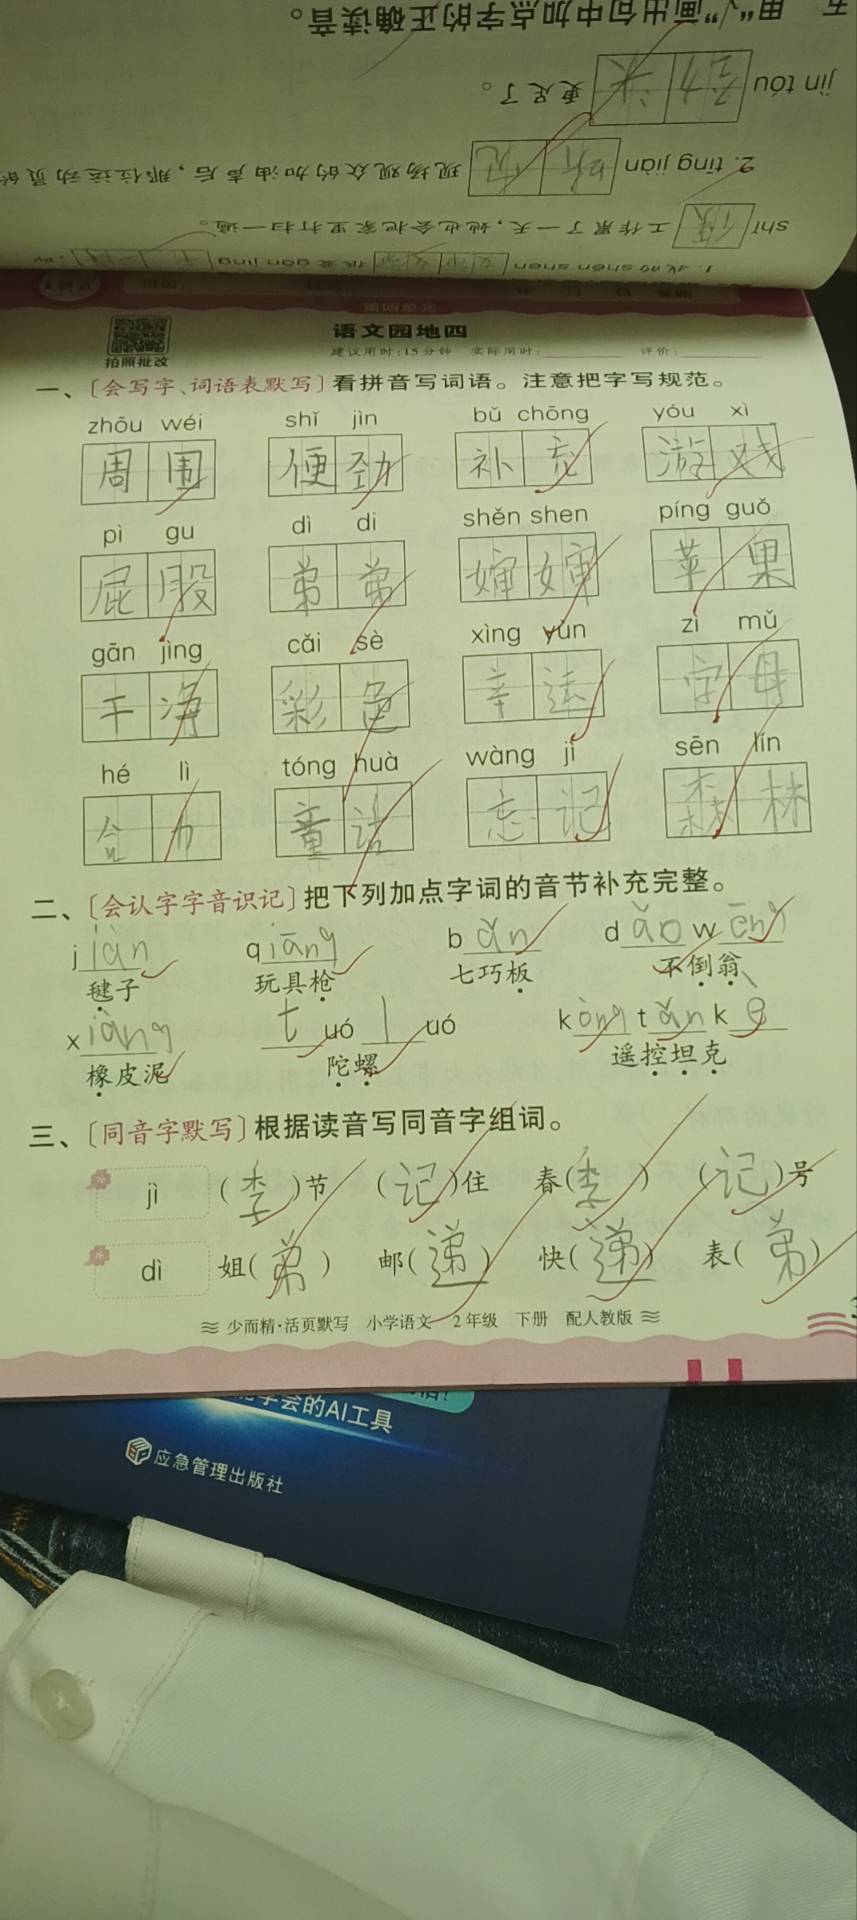 五 用“√”画出句中加点字的正确读音。
jìn tóu 劲头 更足了。
2. tīng jiàn 听见 现场观众的加油声后，那位运动员的
shǐ 使 工作累了一天，她也会把家里打扫一遍。
第四单元
语文园地四
拍照批改
建议用时：15分钟 实际用时： 评价：
一、〔会写字、词语表默写〕看拼音写词语。注意把字写规范。
zhōu wéi shǐ jìn bǔ chōng yóu xì
周围 便劲 补充 游戏
pì gu dì di shěn shen píng guǒ
屁股 弟弟 婶婶 苹果
gān jìng cǎi sè xìng yùn zì mǔ
干净 彩色 幸运 字母
hé lì tóng huà wàng jì sēn lín
合力 童话 忘记 森林
二、〔会认字字音识记〕把下列加点字词的音节补充完整。
jiàn qiāng bǎn dǎo wēng
毽子 玩具枪 七巧板 不倒翁
xiàng tuó luó kòng tǎn kè
橡皮泥 陀螺 遥控坦克
三、〔同音字默写〕根据读音写同音字组词。
jì （季）节 （记）住 春（季） （记）号
dì 姐（弟） 邮（递） 快（递） 表（弟）
少而精·活页默写 小学语文 2年级 下册 配人教版
学会的AI工具
应急管理出版社